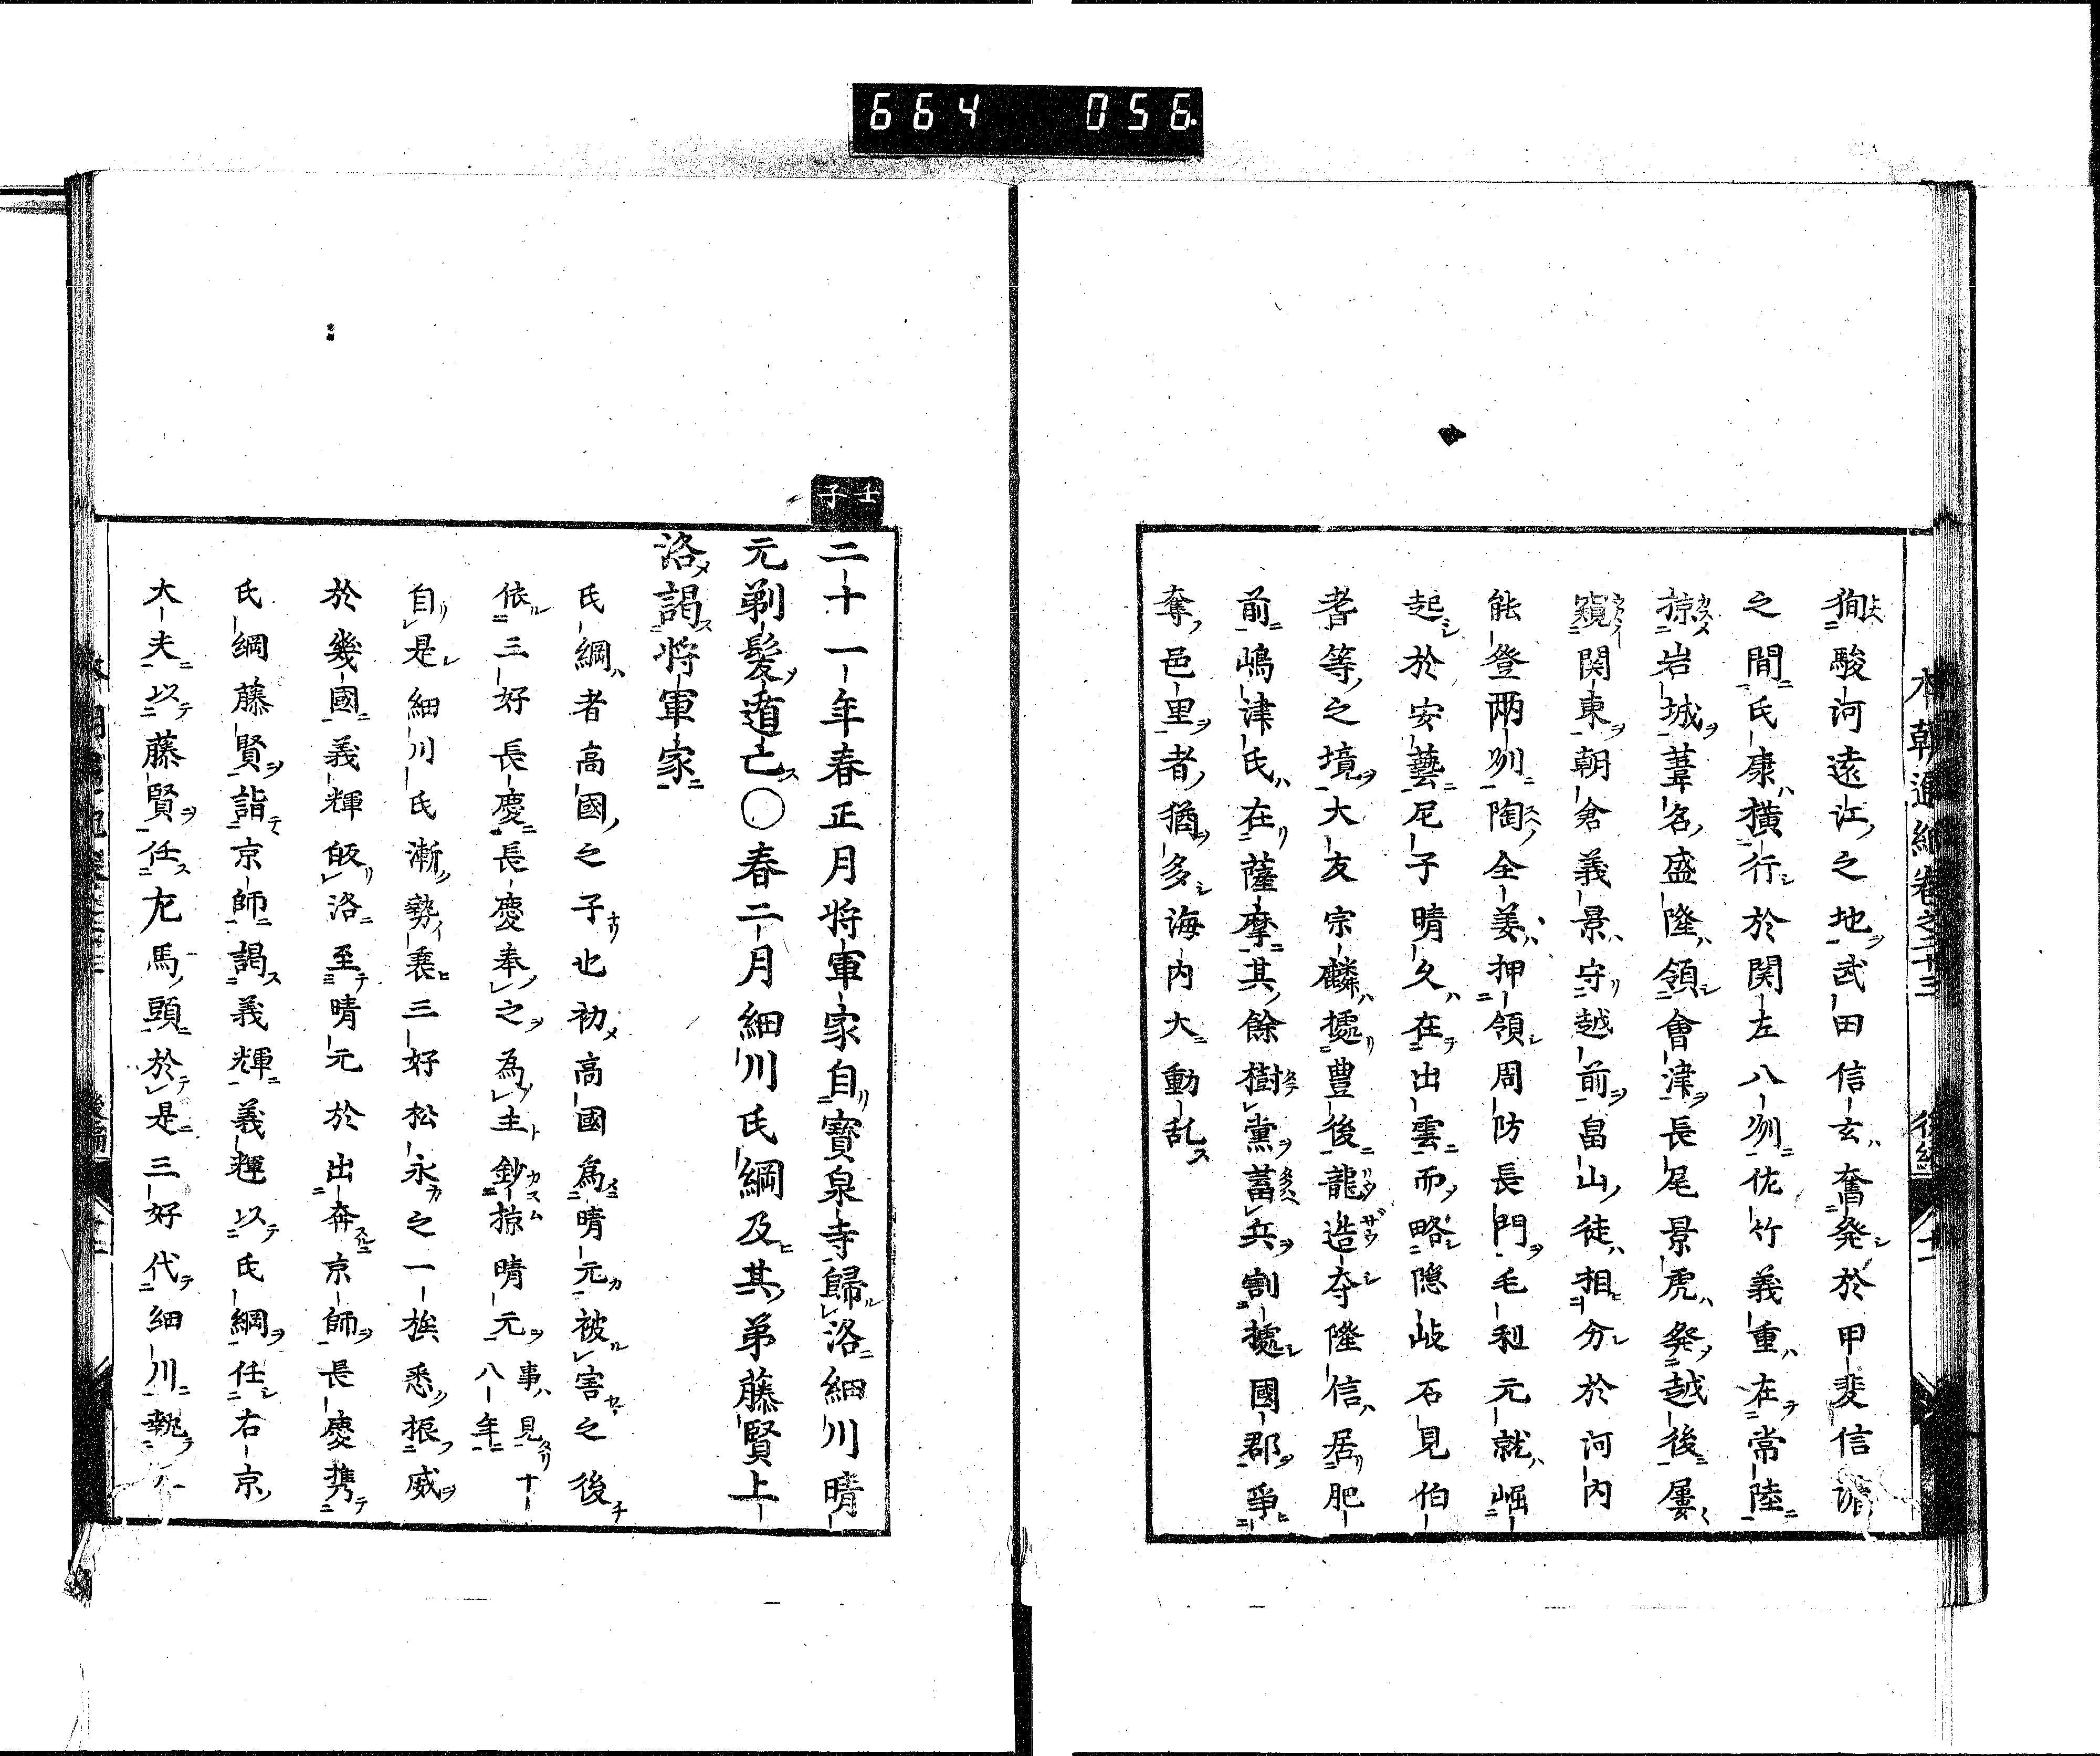 664 056
徇駿河遠江之地武田信玄奮発於甲斐信
之間氏康横行於関左八州佐竹義重在常陸
掠岩城葦名盛隆領會津長尾景虎発越後屢
窺関東朝倉義景守越前畠山徒相分於河内
能登両州陶全姜押領周防長門毛利元就崛
起於安藝尼子晴久在出雲而略隠岐石見伯
耆等之境大友宗麟據豊後龍造寺隆信居肥
前嶋津氏在薩摩其餘樹黨蓄兵割據國郡爭
奪邑里者猶多海内大動乱
壬子
二十一年春正月将軍家自寳泉寺歸洛細川晴
元剃髪遁亡〇春二月細川氏綱及其弟藤賢上
洛謁将軍家
氏綱者高國之子也初高國為晴元被害之後
依三好長慶長慶奉之為主鈔掠晴元事見十八年
自是細川氏漸勢衰三好松永之一族悉振威
於幾國義輝皈洛至晴元於出奔京師長慶携
氏綱藤賢詣京師謁義輝義輝以氏綱任右京
大夫以藤賢任左馬頭於是三好代細川執